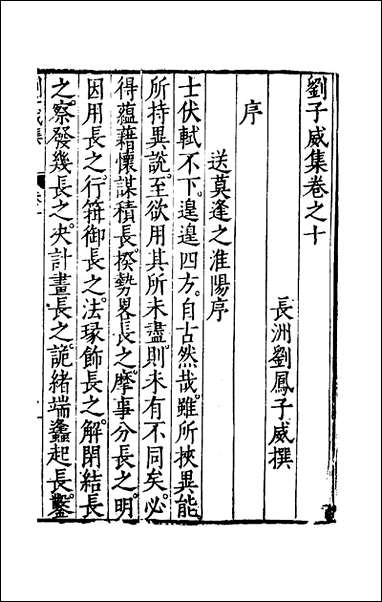 劉子威集卷之十
長洲劉鳳子威撰
序
送莫逢之淮陽序
士伏軾不下遑遑四方自古然哉雖所挾異能
所持異說至欲用其所未盡則未有不同矣必
得蘊藉懷謀積長揆勢畧長之摩事分長之明
因用長之行箝御長之法瑑飾長之解閉結長
之察發幾長之夬計畫長之詭緒端蠭起長鑿